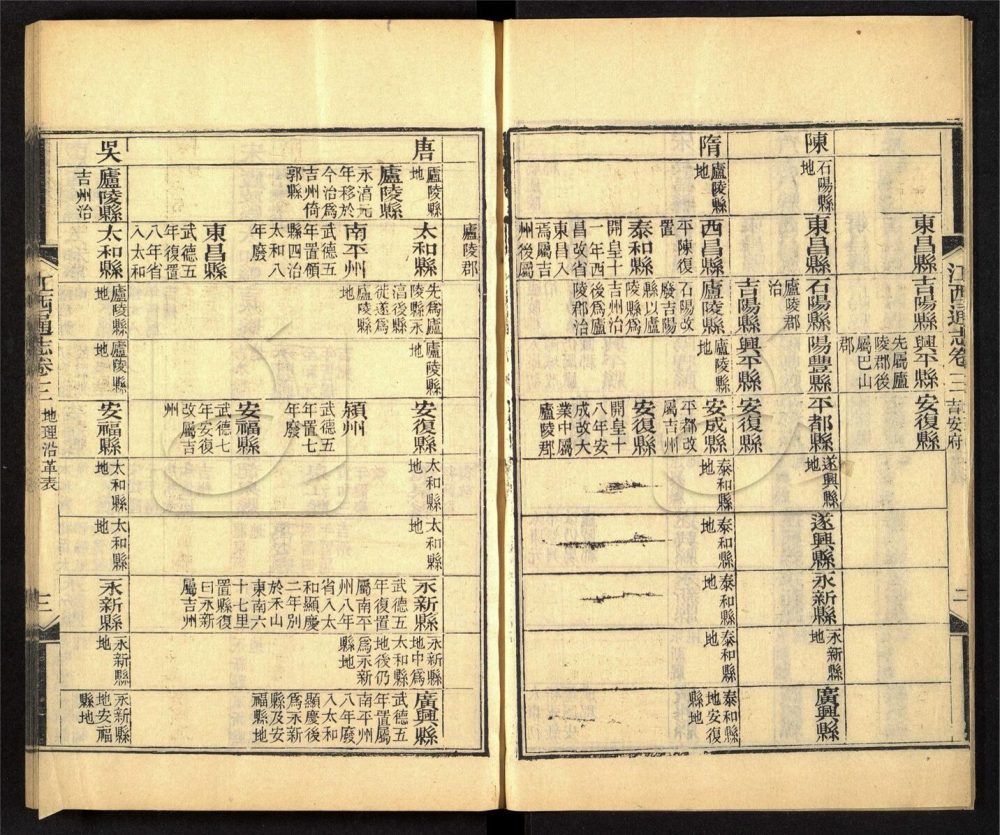 東昌縣
吉陽縣
興平縣
先屬廬
陵郡後
屬巴山
郡
安復縣
陳
石陽縣
地
東昌縣
石陽縣
廬陵郡
治
吉陽縣
陽豐縣
興平縣
平都縣
安復縣
遂興縣
地
遂興縣
永新縣
永新縣
地
廣興縣
隋
廬陵縣
地
西昌縣
平陳復
置
泰和縣
開皇十
一年西
昌改省
東昌入
焉屬吉
州後屬
廬陵縣
石陽改
廢吉陽
縣以廬
陵縣爲
吉州治
後爲廬
陵郡治
廬陵縣
地
安成縣
平都改
屬吉州
安復縣
開皇十
八年安
成改大
業中屬
廬陵郡
泰和縣
地
泰和縣
地
泰和縣
地
泰和縣
地
泰和縣
地安復
縣地
江西通志卷三
吉安府
二
廬陵郡
唐
廬陵縣
地
廬陵縣
永湻元
年移於
今治爲
吉州倚
郭縣
太和縣
南平州
武德五
年置領
縣四治
太和八
年廢
東昌縣
武德五
年復置
八年省
入太和
先爲廬
陵縣永
湻後縣
徙遂爲
廬陵縣
地
廬陵縣
地
安復縣
潁州
武德五
年置七
年廢
安福縣
武德七
年安復
改屬吉
州
太和縣
地
太和縣
地
永新縣
武德五
年復置
屬南平
州八年
省入太
和顯慶
二年別
於禾山
東南六
十七里
置縣復
曰永新
屬吉州
永新縣
地中爲
太和縣
地後仍
爲永新
縣地
廣興縣
武德五
年置屬
南平州
八年廢
入太和
顯慶後
爲永新
縣及安
福縣地
吳
廬陵縣
吉州治
太和縣
廬陵縣
地
廬陵縣
地
安福縣
太和縣
地
太和縣
地
永新縣
永新縣
地
永新縣
地安福
縣地
江西通志卷三
地理沿革表
三